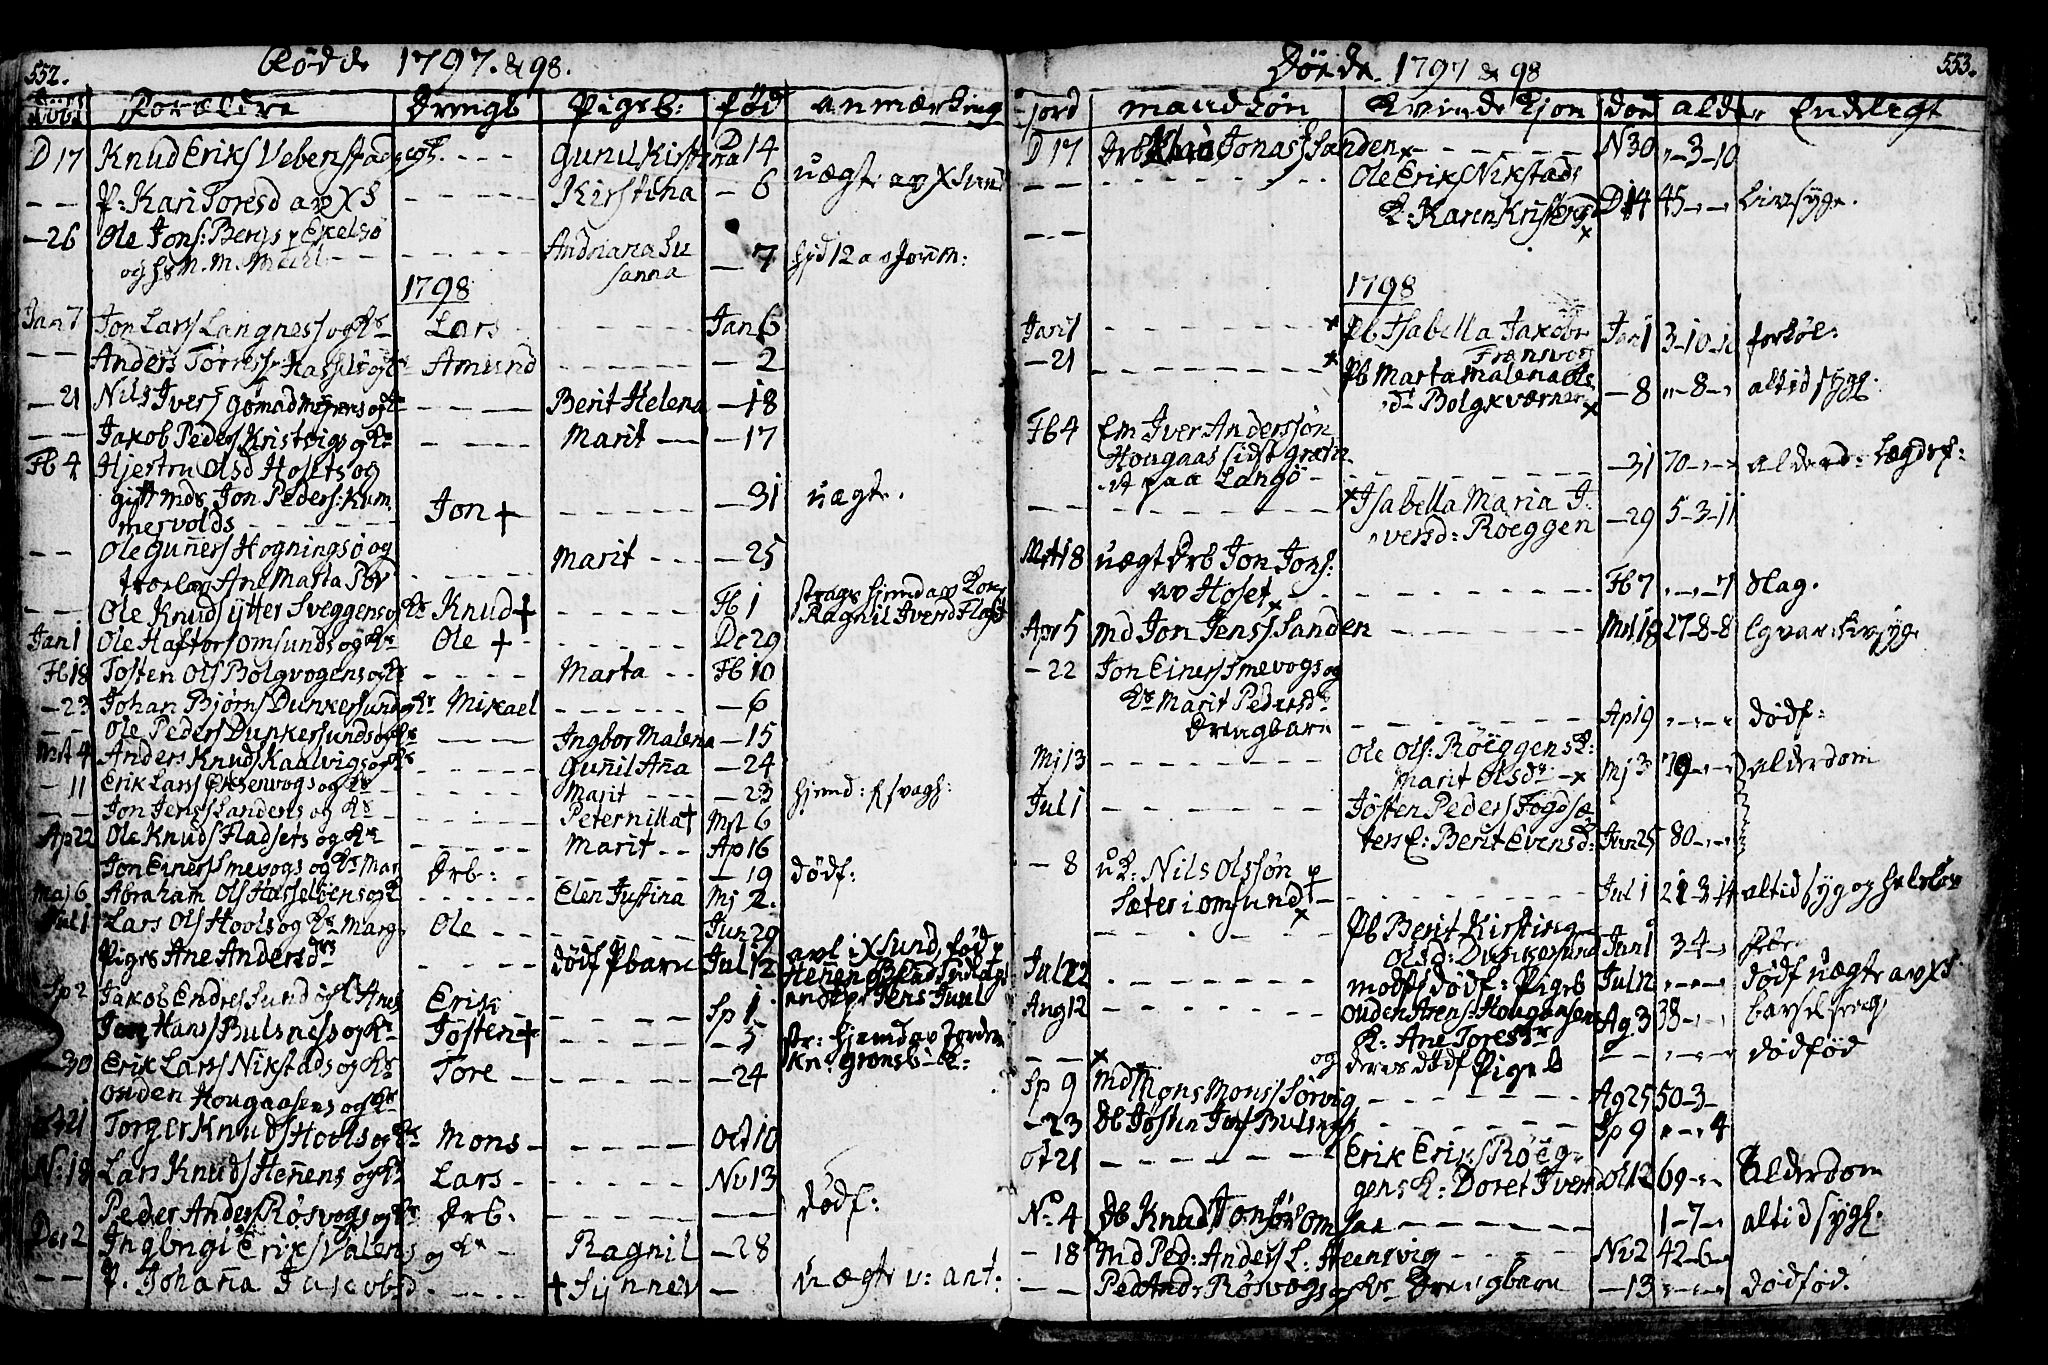 552. Fødde 1797. & 98.
Forældre Drengb Pigeb: fød anmærkning
D 17 Knud Eriks Vebenstads gh. - - - Gunil Kirstina D 14
- - P: Kari Toresd av XS - - - - Kirstina - 6 uægte av X Sund
- 26 Ole Jons: Bergs p Ekelsø
og hs M. M. - - - Andriana Su
sanna - 7 hjd 12 av Jordm:
1798
Jan 7 Jon Lars Langnes og Kr Lars - - - - - - Jan 6
- - Anders Torres Hasselø og Kr Amund - - - - - - - 2
- 21 Nils Ivers Gomadmyrens og Kr - - - - Berit Helena - 18
- - Jakob Peders Kristvigs og Kr - - - - Marit - - - 17
Fb 4 Hjestru Olsd Hosets og
gift mds Jon Peders: Kum
mervolds - - - - - Jon † - - - - - - 31 uægte.
- - Ole Guners Hogningsø og
trolov Ane Marta Ped - - - - - Marit - - - - 25
- - Ole Knuds ytter Sveggens og Kr Knud † - - - - - Fb 1 strags hjemd av Kon
Ragnil Iversd Flads
Jan 1 Ole Haftors Omsunds og Kr Ole † - - - - - De 29
Fb 18 Tosten Ols Bolgvogens og Kr - - - - Marta - - Fb 10
- 23 Johan Bjørns Dunkersund og Kr Mikael - - - - - - - 6
- - Ole Peders Dunkersunds og Kr - - - - Ingbor Malena - 15
Mrt 4 Anders Knuds Kaalvigs og Kr - - - - - Gunil Ana - 24
- 11 Erik Lars Eksenvogs og Kr - - - - - Marit - - - - 23 hjemd: f svagh:
- - Jon Jens Sandens og Kr - - - - - - Peternilla † Mrt 6
Ap 22 Ole Knuds Fladsets og Kr - - - - - Marit - - Ap 16
Jon Einers Smevogs og Kr Mar Drb: - - - - - - - 19 dødf:
Maj 6 Abraham Ols Hasseløens og K - - - - - Elen Justina Mj 2.
Jul 1 Lars Ols Hovls og Kr Marg: Ole - - - - - - Jun 29
Piges Ane Andersdrs - - - - dødf Pbarn Jul 12 avl i X sund, fød p
Henen
Jens Juul
Sp 2 Jakob Endres Sund og K Anes Erik - - - - Sp 1
Jon Hans Bulsnes og Kr Josten † - - - - - 5 str: hjemd av Jordm
Kn: Gronsb: K:
- 30 Erik Lars Nikstads og Kr Tore - - - - - 24
Ouden Hougaasens og Kr
ot 21 Torger Knuds Hovls og Kr Mons - - - - - Oct 10
N: 18 Lars Knuds Henens og Kr Lars - - - - - Nv 13
Peder Anders Røsvogs og Kr Drb. - - - - - - - dødf:
Der 2 Ingbrigt Eriks Valens og Kr - Ragnil - 28
- - P. Johana Jacobsd. - - - - † Synnev - uægte v: ant:
553. Døde 1797 & 98
jord mandkøn Kvindekjøn død alder Endeligt
D 17 Drb Jonas Sanden × - - - - - - N 30 - 3 - 10
- - - - - - - - - - Ole Eriks Nikstads
K: Karen Kristensd × D 14 45 - - Livsyge.
- - -
1798
Jan 1 - - - - - - × Pb Isabella Jakobs
Fransvog Jan 1 3 - 10 - forkøl:
- 21 - - - - - - - × Pb Marta Malena Ols
dr Bolgkværnen × - 8 - 8 - altid sygl:
Fb 4 Em Iver Anderssøn
Hougaas sidst græsn
et paa Langø - - - - - - - - 31 70 - - alderd: Lægdsf:
- - - - - - - - - × Isabella Maria I
versd: Røeggen - 29 5 - 3 - 11
Mrt 18 uægt Drb Jon Jons:
av Hoset × - - - - - - - - Fb 7 - - - 7 slag.
Apr 5 md Jon Jens Sanden - - - - - - Mrt 18 27 - 8 - 8
- 22 Jon Einers Smevogs og
Kr Marit Pedersdr
Drengbarn - - - - - - Ap 19 - - - dødf:
Mj 13 Ole Ols: Røeggens K:
- - - - - - - Marit Olsdr - × Mj 3 79 - - alderdom
Jul 1 - - - - - - Josten Peders Fogdsæ
ters E: Berit Evensd: Jun 25 80 - - -
- 8 uk: Nils Olssøn p
Sæter i omsund † - × - - - - - - Jul 1 21 - 3 - 14 altid syg og helsløs
- - - - - - - Pb Berit Kirstina
Olsd: Dunkersund Jun 1 34 -
Jul 22 - - - - - - - mods dødf: Pigeb Jul 12 - - - dødf uægte av XS.
Aug 12 - - - - - - - Ouden Arens: Hougaasens
K: Ane Toresdr Ag 3 38 - - barselseng
- - × og deres dødf Pigeb - - - - - dødfød
Sp 9 Md Mons Mons Sørvig - - - - - - - Ag 25 50 - 3 -
- 23 Db Josten Jons Bulsnes - - - - - - Sp 9 - - 4
ot 21 - - - - - - Erik Eriks Røeg
gens K: Doret Iversd Ot 12 69 - - Alderdom
No 4 Db Knud Jonsøn Omsaa - - - - - - 1 - 7 - altid sygl.
- 18 × Md Ped: Anders L: Heensvig - - - - Nv 2 42 - 6 -
- - Ped And: Røsvogs og Kr Drengbarn - 13 - - - dødfød.